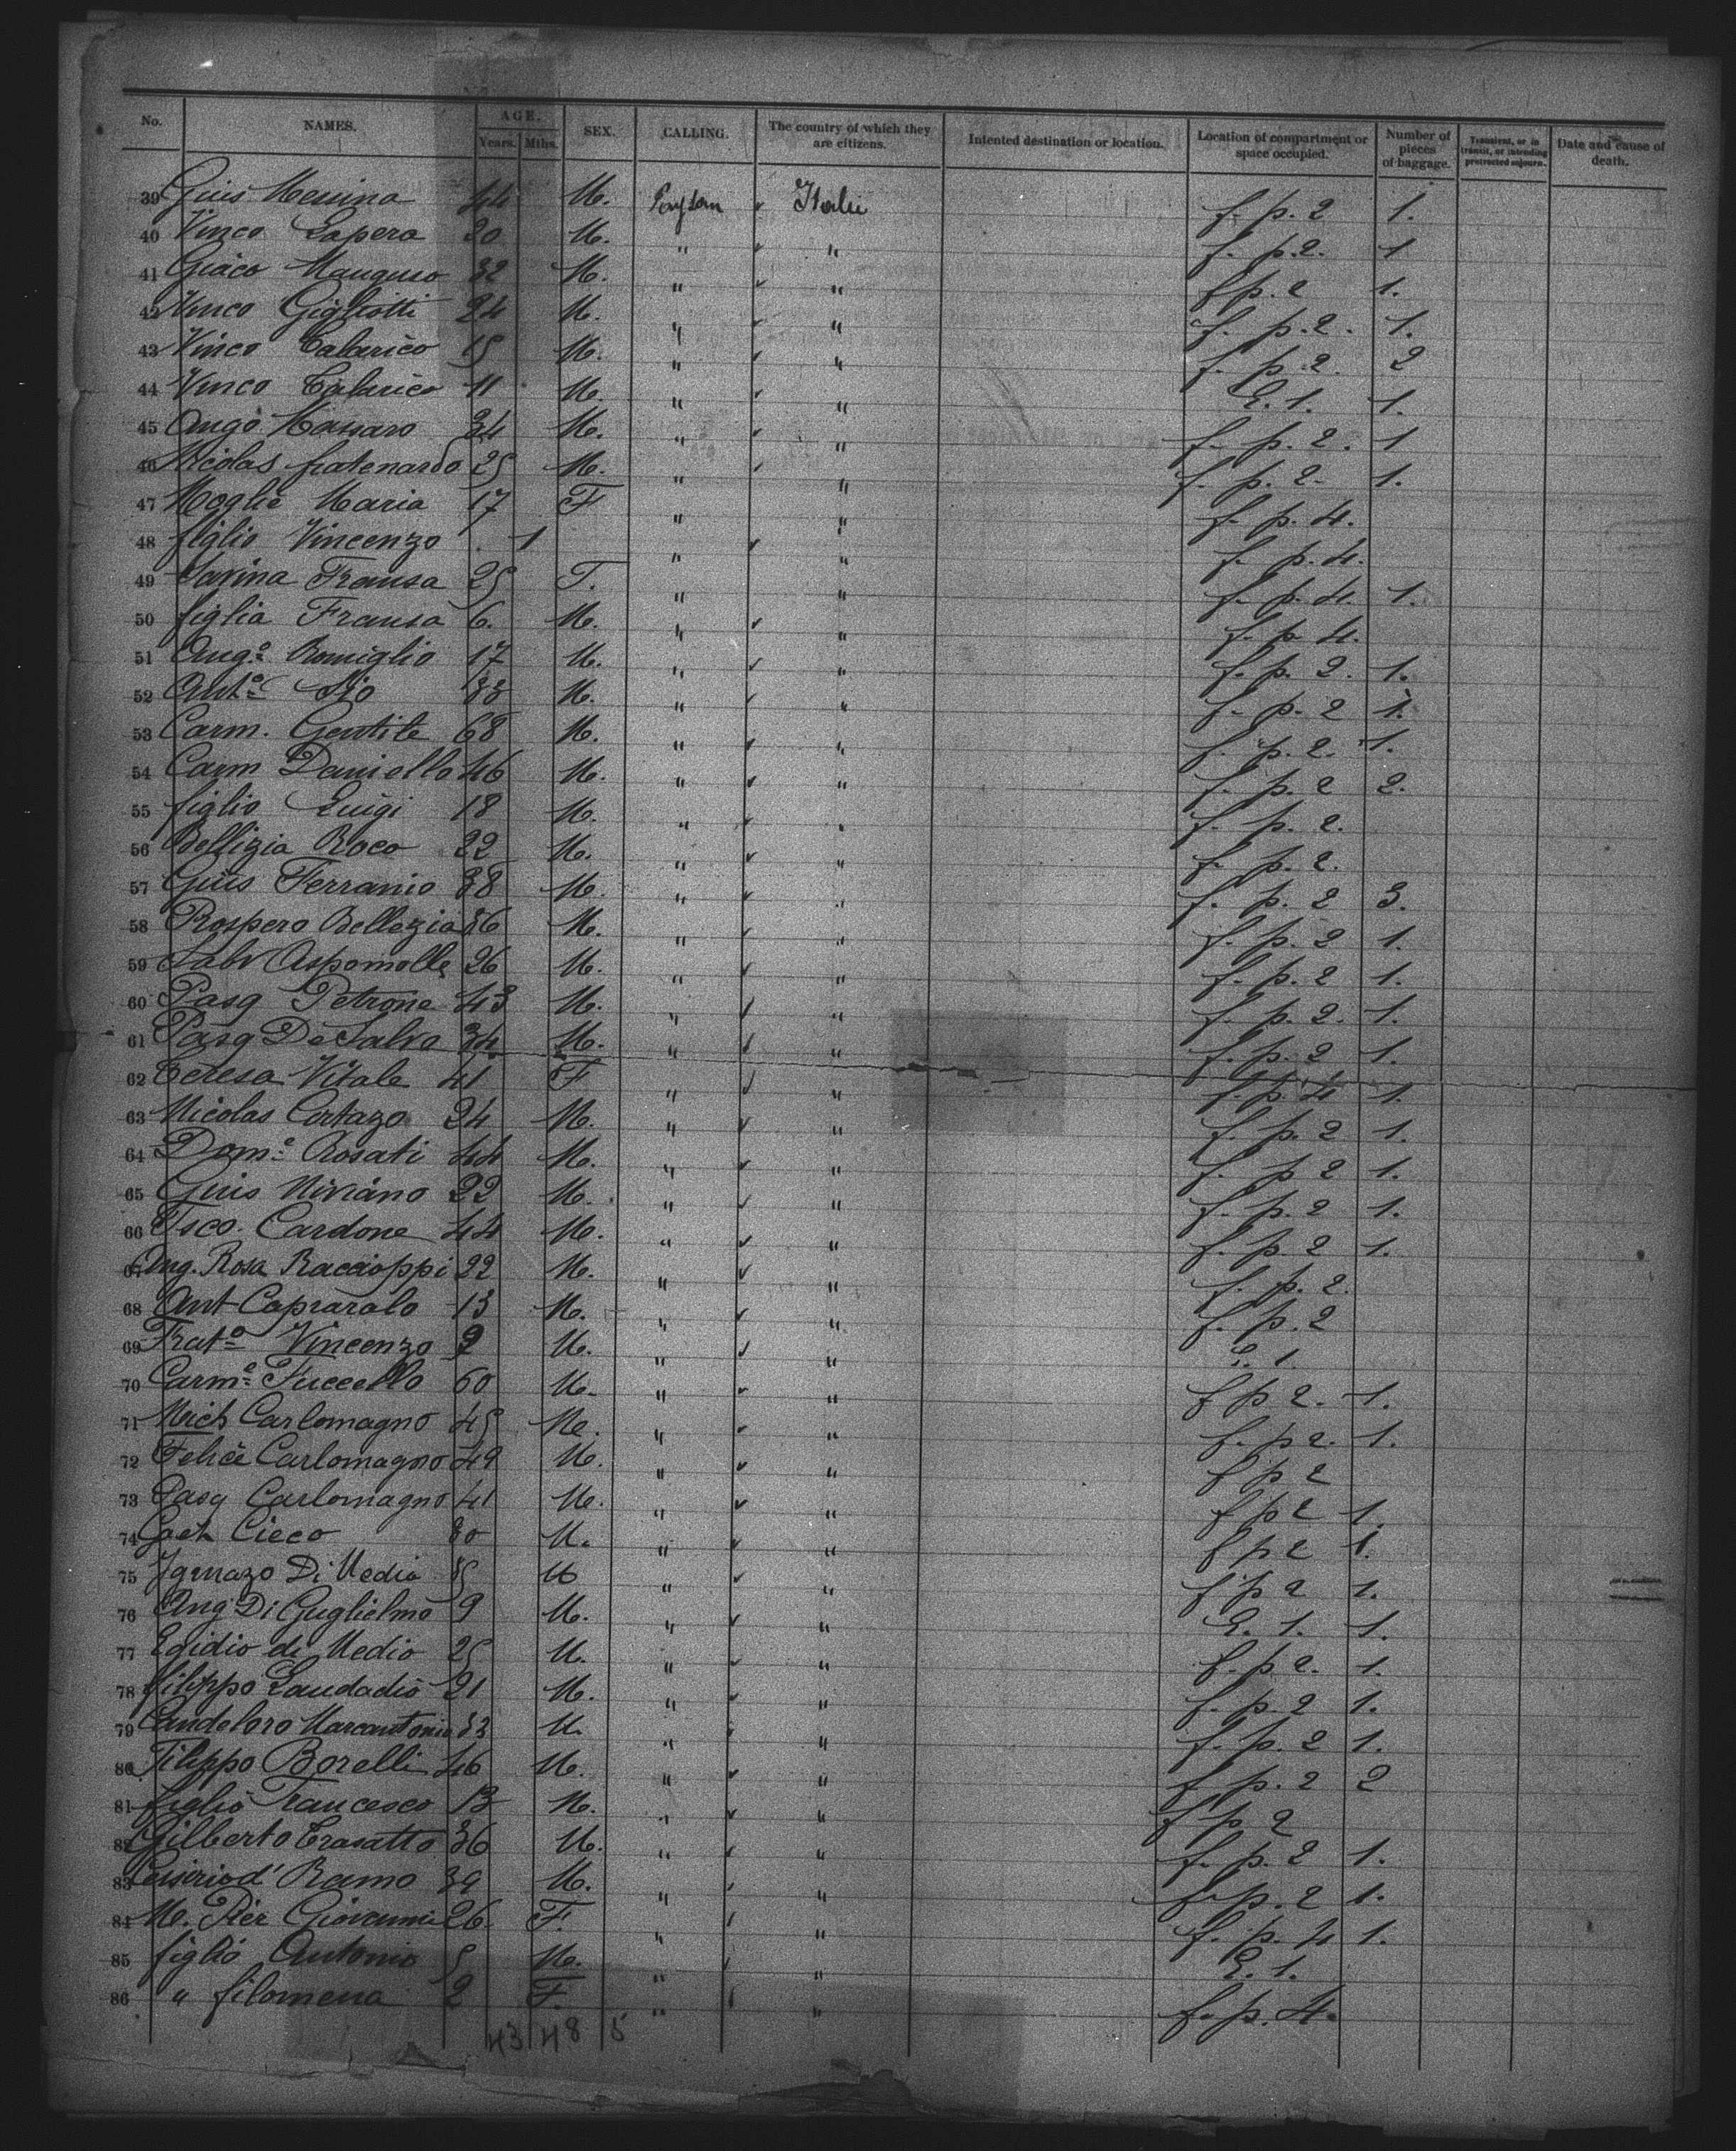 No. NAMES. AGE. Years. Mths. SEX. CALLING. The country of which they are citizens. Intented destination or location. Location of compartment or space occupied. Number of pieces of baggage. Transient, or in transit, or intending protracted sojourn. Date and cause of death.
39 Guis Messina 44 M. Italie f. p. 2 1.
40 Vinco Lapera 20 M. " " f. p. 2. 1
41 Giaco Manguso 32 M. " " f p. 2 1.
42 Vinco Gigliotti 24 M. " " f. p. 2. 1.
43 Vinco Talarico 15 M. " " f. p. 2. 2
44 Vinco Talarico 11 M. " " E. 1. 1.
45 Ango Massaro 34 M. " " f. p. 2. 1
46 Nicolas 25 M. " " f. p. 2. 1.
47 Moglie Maria 17 F " " f. p. 4.
48 figlio Vincenzo 1 " " f. p. 4.
49 Savina Fransa 25 F. " " f. p. 4. 1.
50 figlia Fransa 6. M. " " f. p. 4.
51 Ang.o Romiglio 17 M. " " f. p. 2. 1.
52 Ant.o Sio 33 M. " " f. p. 2 1.
53 Carm. Gentile 68 M. " " f. p. 2. 1.
54 Carm Daniello 46 M. " " f. p. 2 2.
55 figlio Luigi 18 M. " " f. p. 2.
56 Bellizia Roco 22 M. " " f. p. 2.
57 Guis Ferranio 38 M. " " f. p. 2 3.
58 Rospero Bellezia 36 M. " " f. p. 2 1.
59 Salv Aspomolle 26 M. " " f. p. 2 1.
60 Pasq Petrone 43 M. " " f. p. 2. 1.
61 Pasq De Salvo 34 M. " " f. p. 2 1.
62 Teresa Vitale 41 F " " f. p. 4 1.
63 Nicolas Cortazo 24 M. " " f. p. 2 1.
64 Dom.o Rosati 44 M. " " f. p 2 1.
65 Guis Niviano 22 M. " " f. p. 2 1.
66 Fsco. Cardone 44 M. " " f. p. 2 1.
67 Ang. Rosa Raccioppi 22 M. " " f. p. 2.
68 Ant Capraralo 13 M. " " f. p. 2
69 Frat.o Vincenzo 9 M. " " E. 1.
70 Carm.e Fuccello 60 M. " " f p 2. 1.
71 Mich Carlomagno 45 M. " " f. p 2. 1.
72 Felice Carlomagno 49 M. " " f p 2
73 Pasq Carlomagno 41 M. " " f p 2 1.
74 Gaet Cieco 30 M. " " f p 2 1.
75 Ignazo Di Medio M " " f p 2 1.
76 Ang Di Guglielmo 9 M. " " E. 1. 1.
77 Egidio di Medio 25 M. " " f. p. 2. 1.
78 filippo Laudadio 21 M. " " f. p. 2 1.
79 Candeloro Marcantonio 33 M. " " f. p. 2 1.
80 Filippo Borelli 46 M. " " f p. 2 2
81 figlio Francesco 13 M. " " f p 2
82 Gilberto Trasatto 36 M. " " f. p. 2 1.
83 d' Ramo 39 M. " " f. p. 2 1.
84 M. Pier Giovanni 26. F. " " f. p. 4 1.
85 figlio Antonio 5 M. " " E. 1.
86 " filomena 2 F. " " f. p. 4.
43 48 5